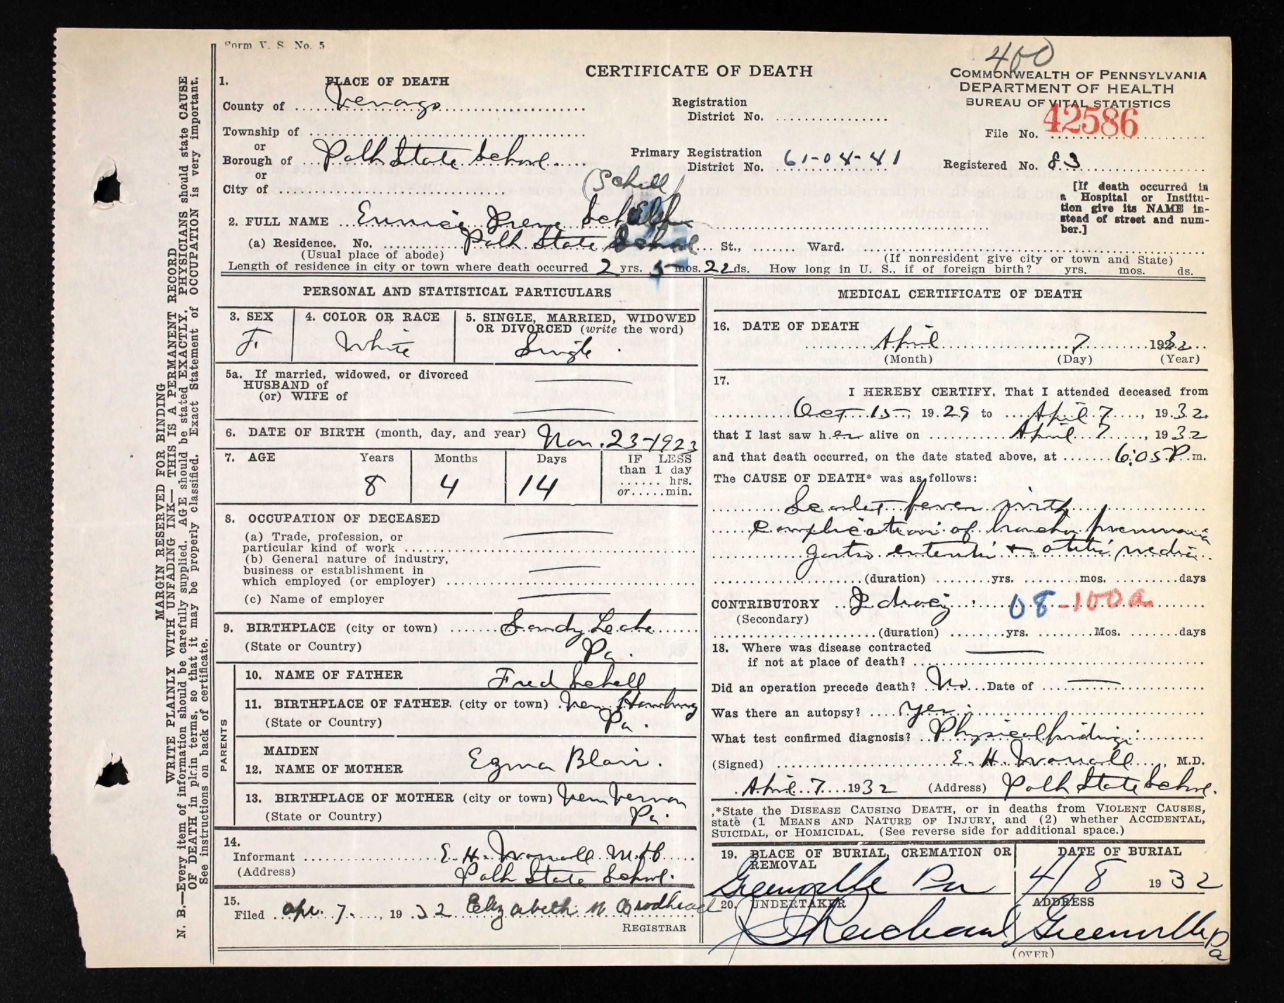 Form V. S. No. 5
400
CERTIFICATE OF DEATH
COMMONWEALTH OF PENNSYLVANIA
DEPARTMENT OF HEALTH
BUREAU OF VITAL STATISTICS
1. PLACE OF DEATH
County of Venango
Township of
or
Borough of Polk State School
or
City of
Registration
District No.
Primary Registration
District No. 61-04-41
File No. 42586
Registered No. 83
[If death occurred in
a Hospital or Institu-
tion give its NAME in-
stead of street and num-
ber.]
(Schell)
2. FULL NAME Eunice Irene
(a) Residence, No. Polk State School St., Ward.
(Usual place of abode)
(If nonresident give city or town and State)
Length of residence in city or town where death occurred 2 yrs. 5 mos. 22 ds. How long in U. S., if of foreign birth? yrs. mos. ds.
MARGIN RESERVED FOR BINDING
WRITE PLAINLY WITH UNFADING INK—THIS IS A PERMANENT RECORD
N. B.—Every item of information should be carefully supplied. AGE should be stated EXACTLY. PHYSICIANS should state CAUSE
OF DEATH in plain terms, so that it may be properly classified. Exact Statement of OCCUPATION is very important.
See instructions on back of certificate.
PERSONAL AND STATISTICAL PARTICULARS
3. SEX
F.
4. COLOR OR RACE
White
5. SINGLE, MARRIED, WIDOWED
OR DIVORCED (write the word)
Single.
5a. If married, widowed, or divorced
HUSBAND of
(or) WIFE of
6. DATE OF BIRTH (month, day, and year) Nov. 23-1923
7. AGE Years Months Days IF LESS
than 1 day
hrs.
or min.
8 4 14
8. OCCUPATION OF DECEASED
(a) Trade, profession, or
particular kind of work
(b) General nature of industry,
business or establishment in
which employed (or employer)
(c) Name of employer
9. BIRTHPLACE (city or town) Sandy Lake
(State or Country) Pa.
PARENTS
10. NAME OF FATHER Fred Schell
11. BIRTHPLACE OF FATHER (city or town) New Hamburg
(State or Country) Pa.
MAIDEN
12. NAME OF MOTHER Blair.
13. BIRTHPLACE OF MOTHER (city or town) New Vernon
(State or Country) Pa.
14.
Informant E. H. M.D.
(Address) Polk State School.
15.
Filed Apr. 7. 1932 Elizabeth M Brodhead
REGISTRAR
MEDICAL CERTIFICATE OF DEATH
16. DATE OF DEATH
April 7 1932
(Month) (Day) (Year)
17.
I HEREBY CERTIFY, That I attended deceased from
Oct. 15. 1929 to April 7, 1932.
that I last saw her alive on April 7, 1932
and that death occurred, on the date stated above, at 6:05 P.m.
The CAUSE OF DEATH* was as follows:
Scarlet fever with
complication of broncho pneumonia
gastro enteritis + otitis media
(duration) yrs. mos. days
CONTRIBUTORY Idiocy. 08 -100a
(Secondary)
(duration) yrs. Mos. days
18. Where was disease contracted
if not at place of death?
Did an operation precede death? No Date of
Was there an autopsy? yes.
What test confirmed diagnosis? Physical findings
(Signed) E. H. M.D.
April 7 1932 (Address) Polk State School.
*State the DISEASE CAUSING DEATH, or in deaths from VIOLENT CAUSES,
state (1 MEANS AND NATURE OF INJURY, and (2) whether ACCIDENTAL,
SUICIDAL, or HOMICIDAL. (See reverse side for additional space.)
19. PLACE OF BURIAL CREMATION OR
REMOVAL
Greenville Pa
DATE OF BURIAL
4/8 1932
20. UNDERTAKER
ADDRESS
Greenville Pa
(OVER)